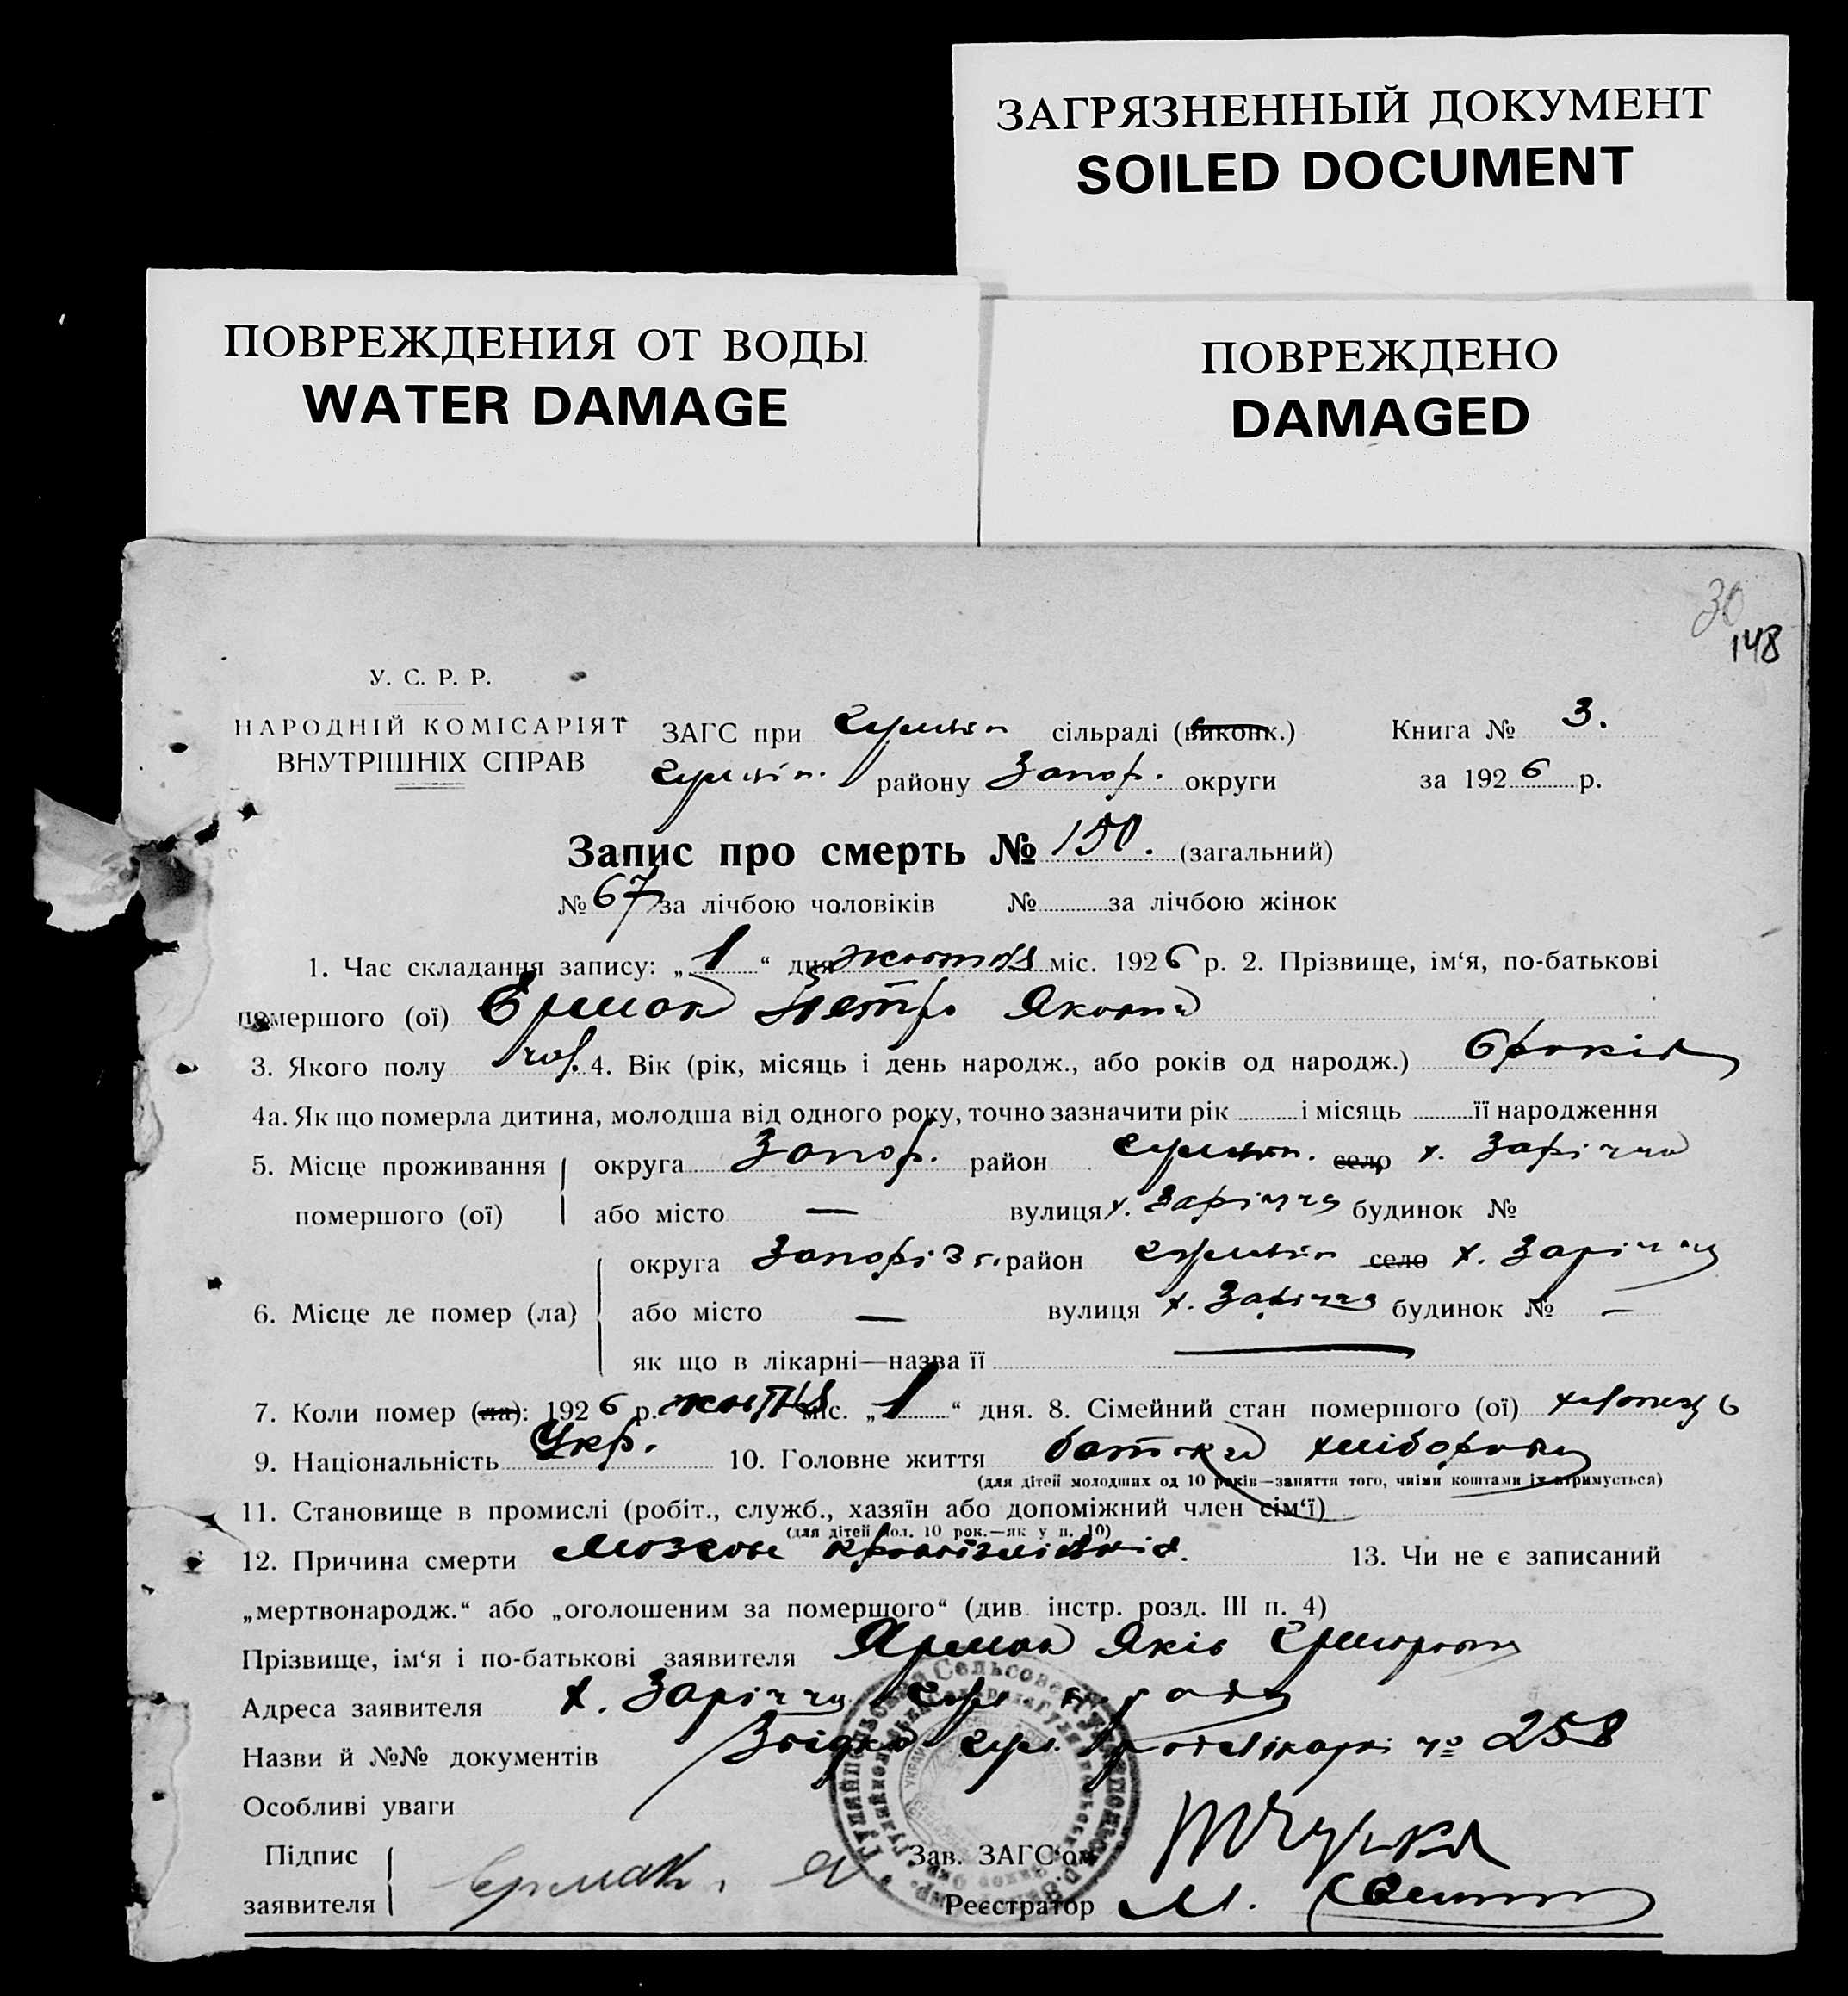 ЗАГРЯЗНЕННЫЙ ДОКУМЕНТ
SOILED DOCUMENT
ПОВРЕЖДЕНИЯ ОТ ВОДЫ
WATER DAMAGE
ПОВРЕЖДЕНО
DAMAGED
30
148
У. С. Р. Р.
НАРОДНІЙ КОМІСАРІЯТ
ВНУТРІШНІХ СПРАВ
ЗАГС при сільраді (виконк.) Книга № 3.
району Запор. округи за 1926 р.
Запис про смерть № 150. (загальний)
№ 67 за лічбою чоловіків № за лічбою жінок
1. Час складання запису: „1“ дня жовтня міс. 1926 р. 2. Прізвище, ім‘я, по-батькові
помершого (ої) Ермак Петро Якович
3. Якого полу чол. 4. Вік (рік, місяць і день народж., або років од народж.) 6 років
4а. Як що померла дитина, молодша від одного року, точно зазначити рік і місяць її народження
5. Місце проживання округа Запор. район село х. Заріччя
помершого (ої) або місто — вулиця х. Заріччя будинок №
округа Запоріз. район село х. Заріччя
6. Місце де помер (ла) або місто — вулиця х. Заріччя будинок № —
як що в лікарні—назва її —
7. Коли помер (ла): 1926 р. жовтня міс. „1“ дня. 8. Сімейний стан помершого (ої)
9. Національність Укр. 10. Головне життя батько хлібороб
(для дітей молодших од 10 років—заняття того, чиїми коштами їх утримується)
11. Становище в промислі (робіт., служб., хазяїн або допоміжний член сім‘ї)
(для дітей мол. 10 рок.—як у п. 10)
12. Причина смерти 13. Чи не є записаний
„мертвонародж.“ або „оголошеним за померщого“ (див. інстр. розд. III п. 4)
Прізвище, ім‘я і по-батькові заявителя Ярмак Яків
Адреса заявителя х. Заріччя
Назви й №№ документів № 258
Особливі уваги
Підпис
заявителя Ермак. Я.
Зав. ЗАГС‘ом
Реєстратор М.